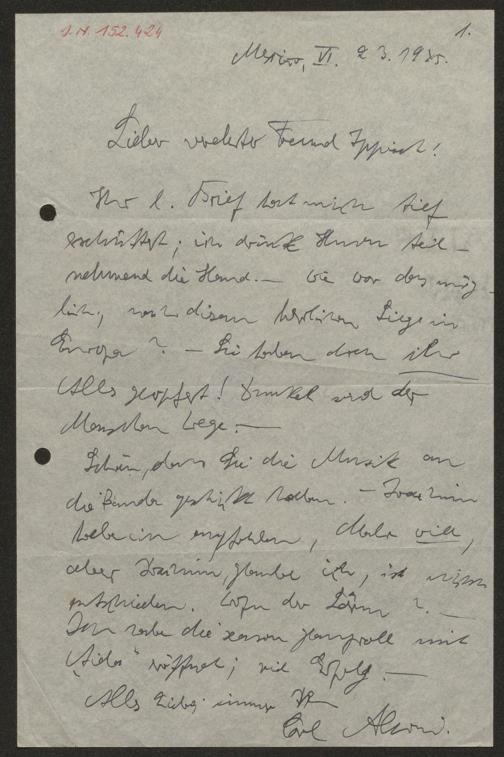 J.N. 152.424
1.
Mexico, VI. 23. 1935.
Lieber verehrter Freund Ippisch!
Ihr l. Brief hat mich tief
erschüttert; ich drücke Ihnen teil-
nehmend die Hand. — Wie war das mög-
lich, nach diesem herrlichen Siege in
Europa? — Sie haben doch ihr
Alles geopfert! Dunkel sind der
Menschen Wege. —
Schön, dass Sie die Musik an
die geschickt haben. —
habe ich empfohlen, will,
aber glaube ich, ist nicht
entschieden. der Lärm?. —
Ich habe die season glanzvoll mit
"Aida" eröffnet; viel Erfolg. —
Alles Liebe immer Ihr
Carl Alwin.